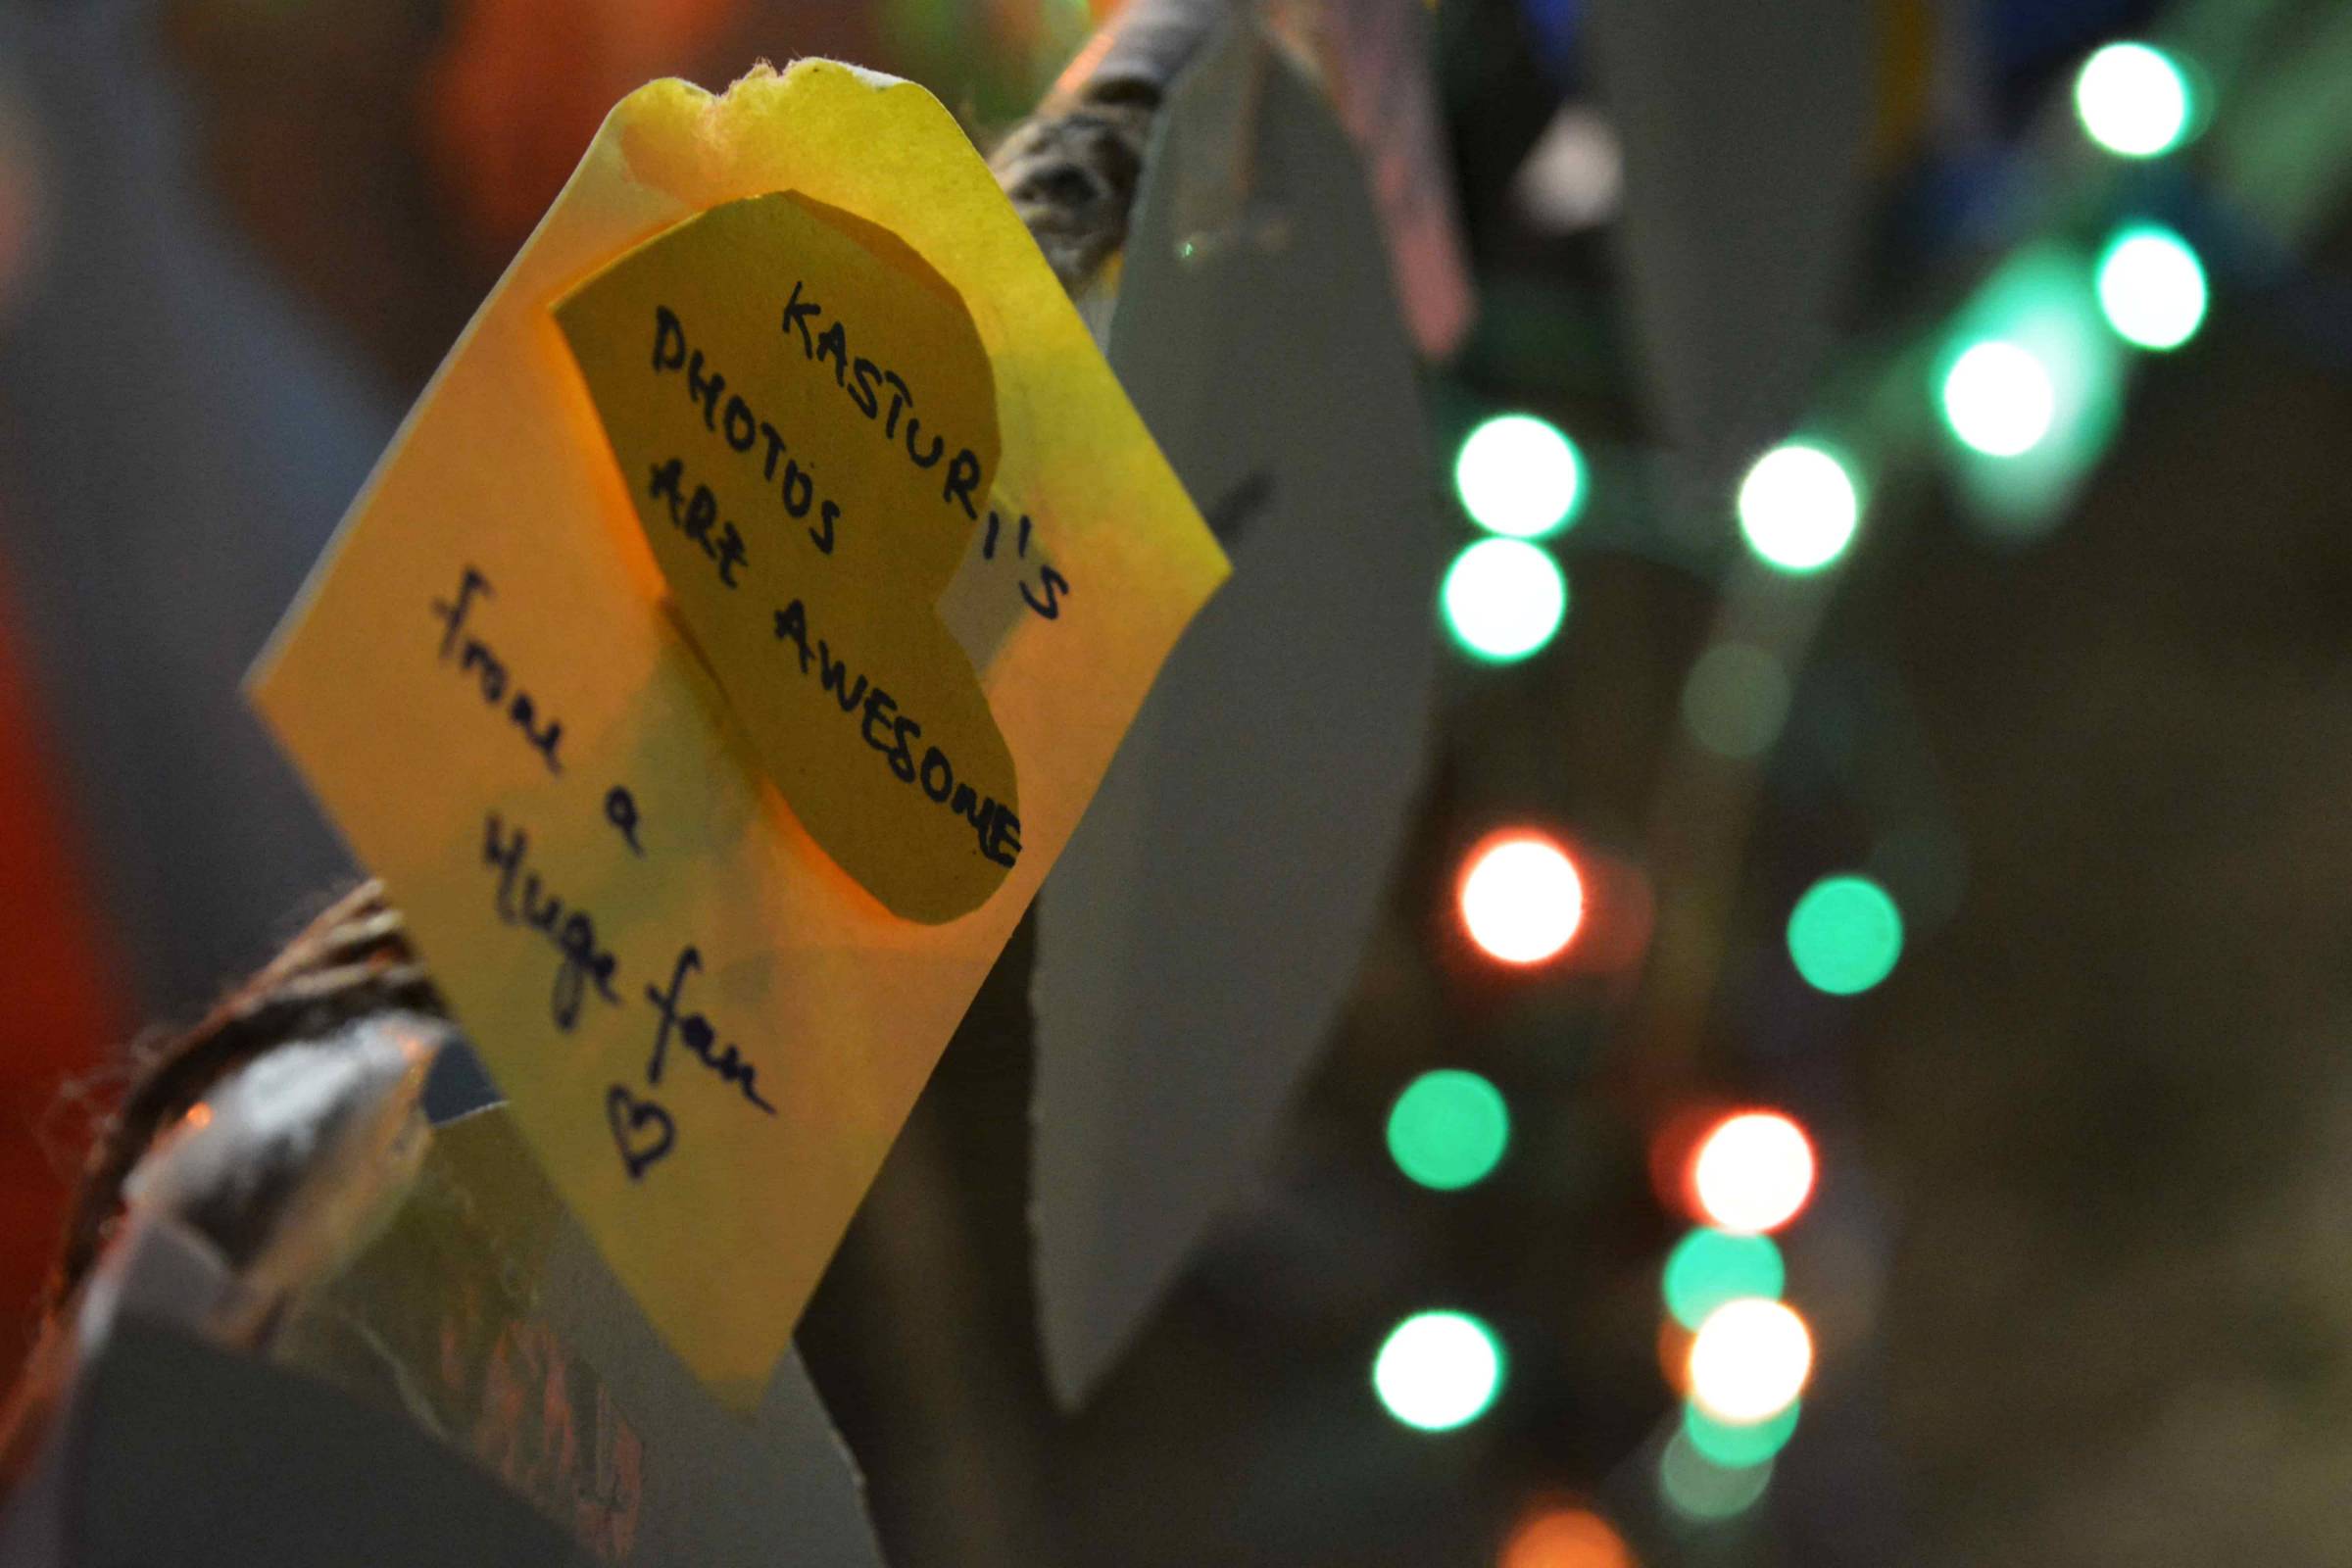 KASTURI'S
PHOTOS
ARE AWESOME
From a
Huge fan
♡